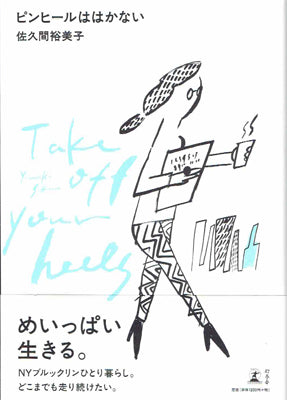 ピンヒールははかない
佐久間裕美子
Take
off
your
heels
めいっぱい
生きる。
NYブルックリンひとり暮らし。
どこまでも走り続けたい。
幻冬舎